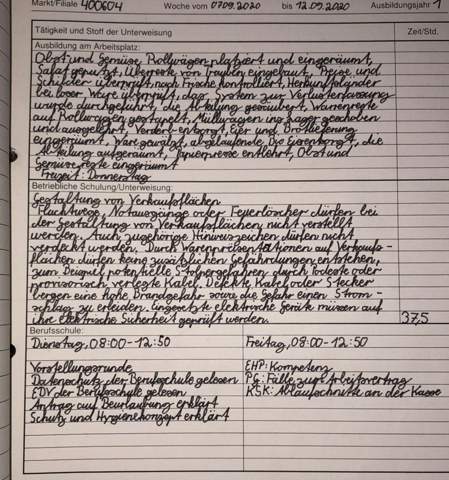 Markt/Filiale 400604 Woche vom 07.09.2020 bis 12.09.2020 Ausbildungsjahr 1
Tätigkeit und Stoff der Unterweisung Zeit/Std.
Ausbildung am Arbeitsplatz:
Obst und Gemüse, Rollwägen platziert und eingeräumt,
Salat geputzt, von Trauben eingebaut, Preise und
Schilder überprüft, nach Frische kontrolliert, Herkunftsländer
bei loser Ware überprüft, das System zur
wurde durchgeführt, die Abteilung gesäubert, Warenreste
auf Rollwagen gestapelt, Müllwagen ins Lager geschoben
und ausgeleert, Verderb entsorgt, Eier und Brotlieferung
eingeräumt, Ware gewälzt, ablaufende Eier entsorgt, die
Abteilung aufgeräumt, Papierpresse entleert, Obst und
Gemüse reste eingeräumt
Freizeit: Donnerstag
Betriebliche Schulung/Unterweisung:
Gestaltung von Verkaufsflächen
Fluchtwege, Notausgänge oder Feuerlöscher dürfen bei
der Gestaltung von Verkaufsflächen nicht verstellt
werden. Auch zugehörige Hinweiszeichen dürfen nicht
verdeckt werden. Durch Warenpräsentationen auf Verkaufs-
flächen dürfen keine zusätzlichen Gefährdungen entstehen,
zum Beispiel potenzielle Stolpergefahren durch Podeste oder
provisorisch verlegte Kabel. Defekte Kabel oder Stecker
bergen eine hohe Brandgefahr sowie die Gefahr einen Strom-
schlag zu erleiden. Eingesetzte elektrische Geräte müssen auf
ihre elektrische Sicherheit geprüft werden. 37,5
Berufsschule:
Dienstag, 08:00-12:50 Freitag, 08:00-12:50
Vorstellungsrunde EHP: Kompetenz
Datenschutz der Berufsschule gelesen PG: Fälle zum Arbeitsvertrag
EDV der Berufsschule gelesen KSK: Ablaufschritte an der Kasse
Antrag auf Beurlaubung erklärt
Schutz und Hygienekonzept erklärt